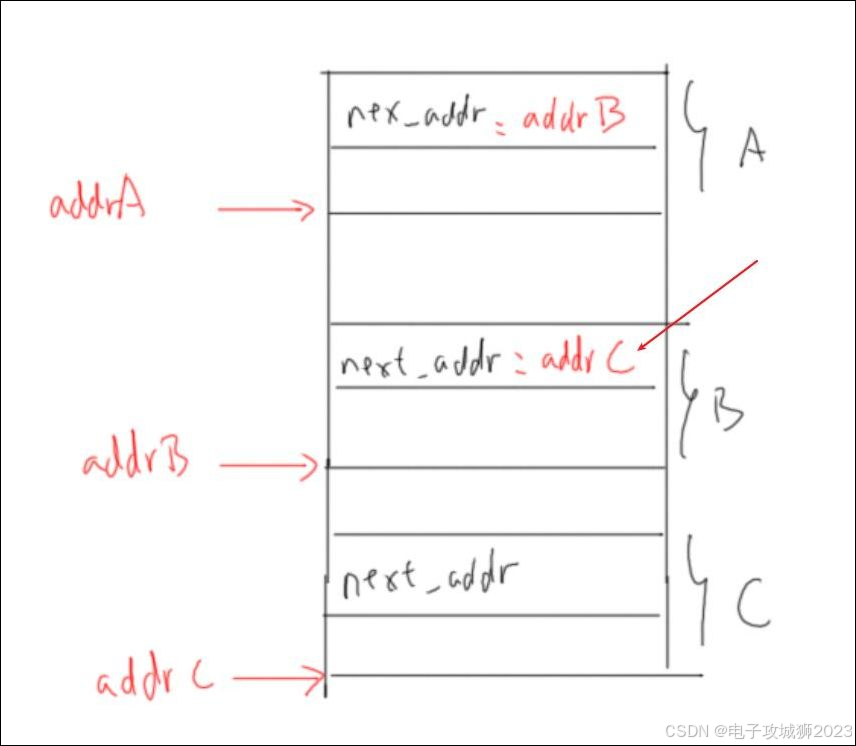 nex_addr = addr B
A
addrA
next_addr = addr C
B
addr B
next_addr
C
addr C
CSDN @电子攻城狮2023